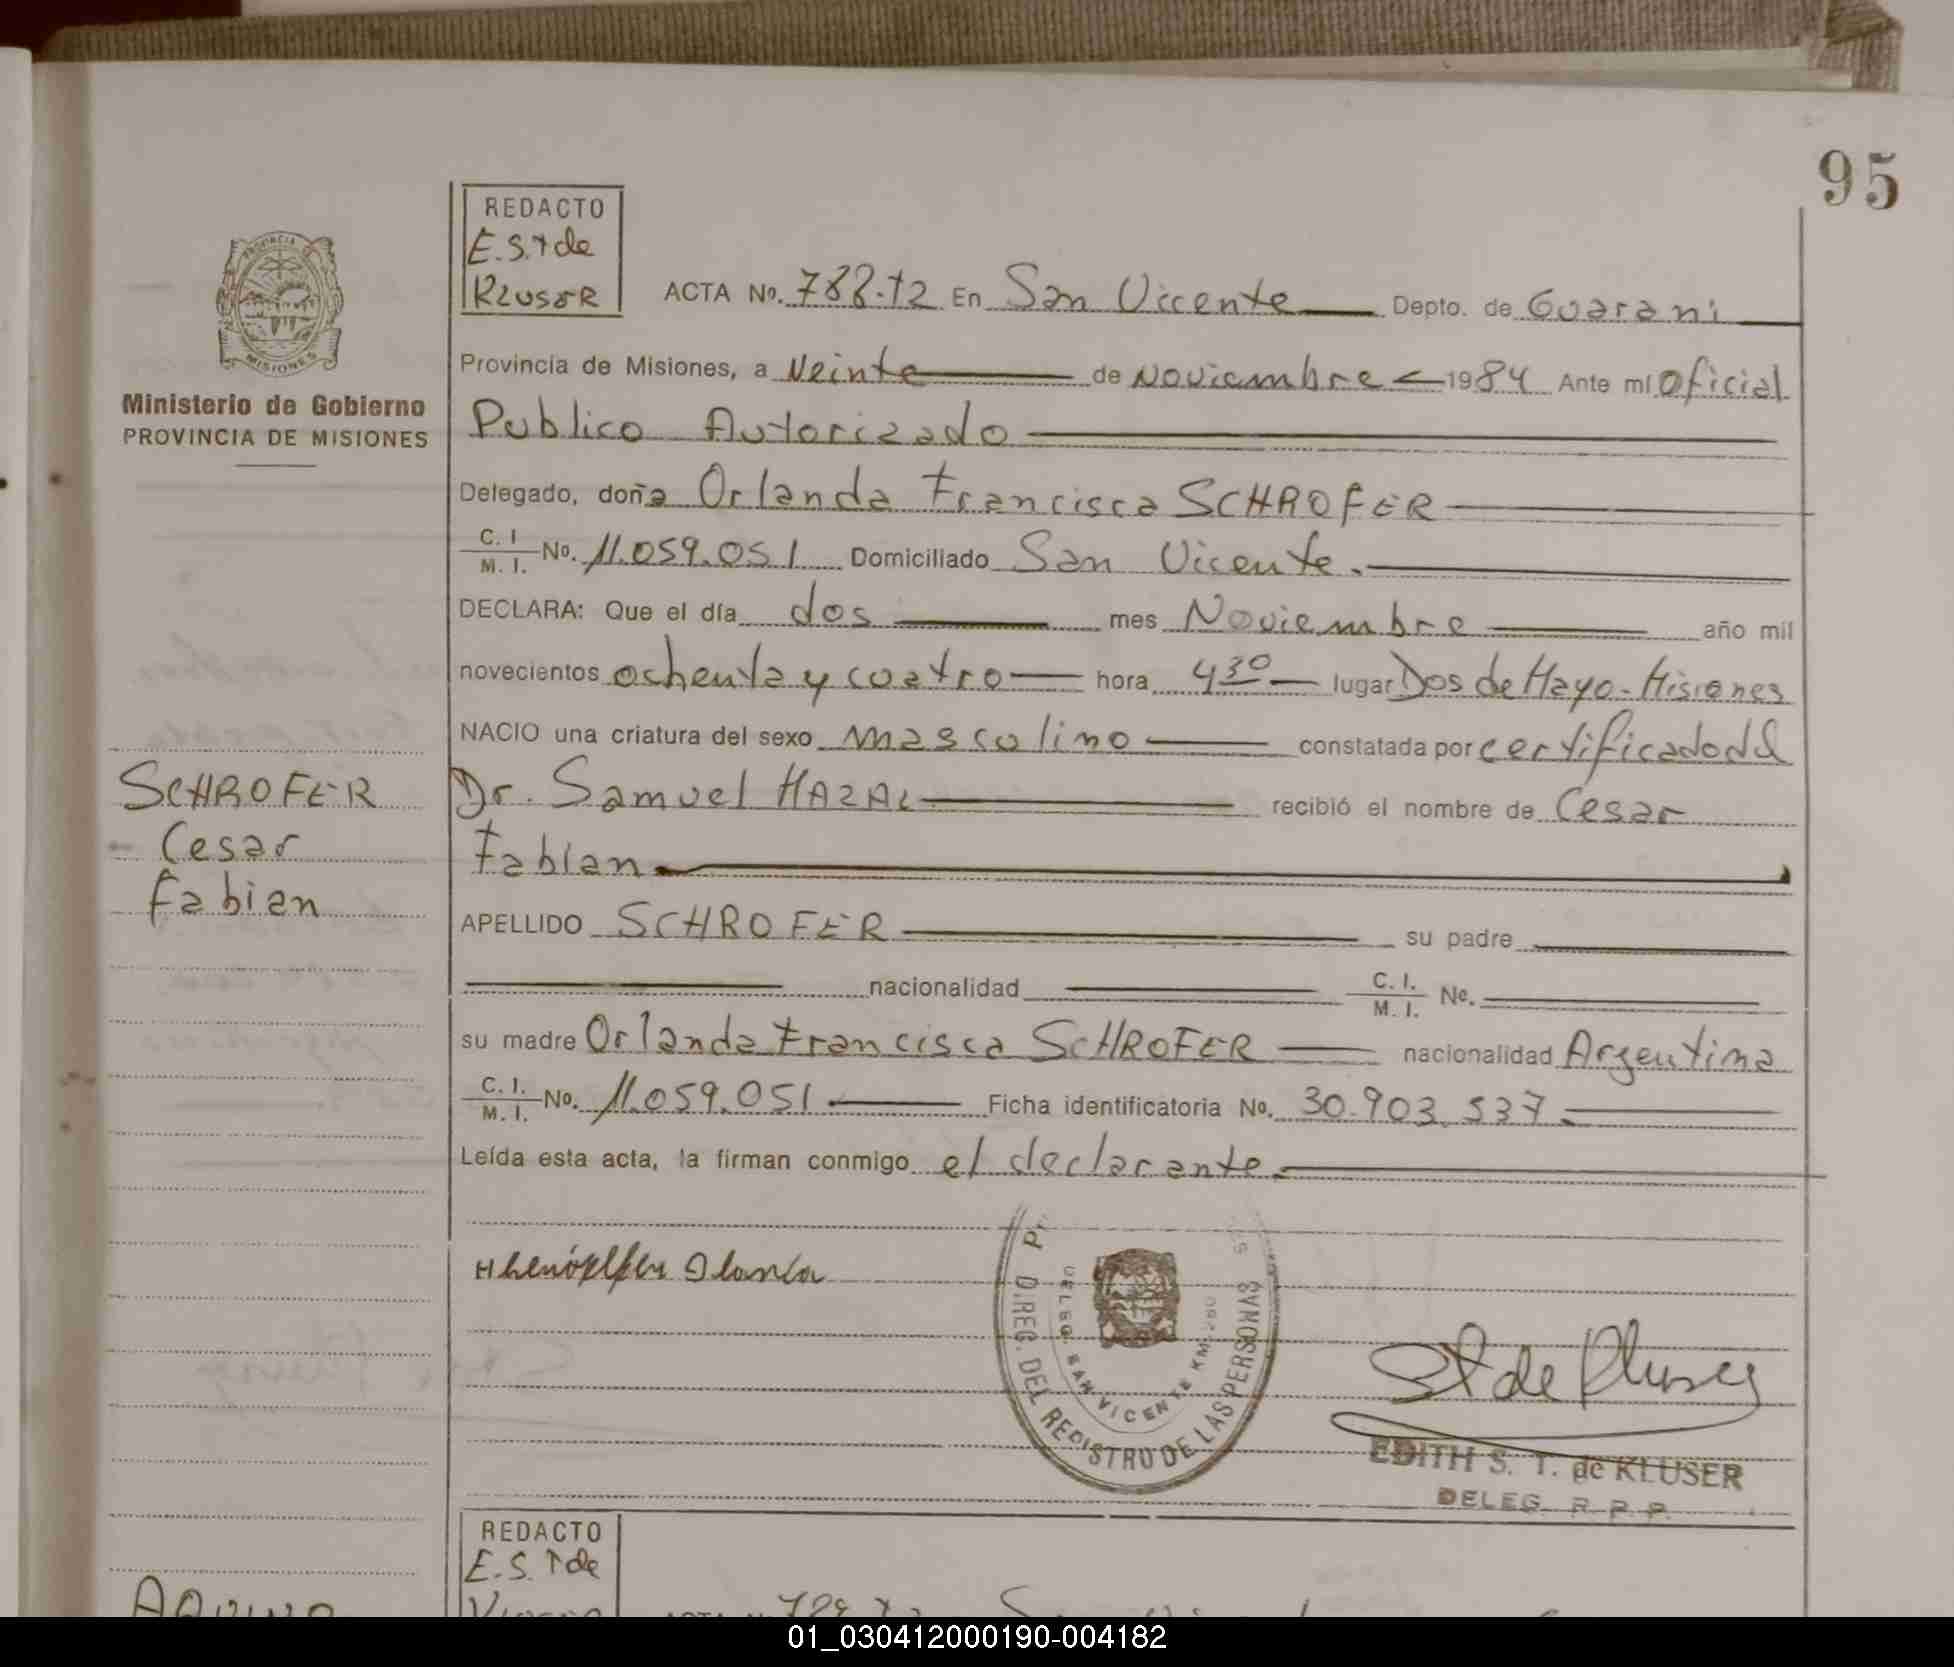 95
REDACTO
E.S.T de
KLUSER
PROVINCIA DE
MISIONES
Ministerio de Gobierno
PROVINCIA DE MISIONES
ACTA No. 788.T2 En San Vicente Depto. de Guarani
Provincia de Misiones, a Veinte de Noviembre 1984 Ante mí Oficial
Publico Autorizado
Delegado, doña Orlanda Francisca SCHROFER
C. I. M. I. No. 11.059.051 Domiciliado San Vicente.
DECLARA: Que el día dos mes Noviembre año mil
novecientos ochenta y cuatro hora 4 30 lugar Dos de Mayo - Misiones
NACIO una criatura del sexo masculino constatada por certificado del
Dr. Samuel HAZAL recibió el nombre de Cesar
Fabian
SCHROFER
Cesar
Fabian
APELLIDO SCHROFER su padre
nacionalidad C. I. M. I. No.
su madre Orlanda Francisca SCHROFER nacionalidad Argentina
C. I. M. I. No. 11.059.051 Ficha identificatoria No. 30.903.537
Leída esta acta, la firman conmigo el declarante
DIREC. DEL REGISTRO DE LAS PERSONAS
DELEG. SAN VICENTE KM.
St de Kluser
EDITH S. T. de KLUSER
DELEG. R. P. P.
REDACTO
E.S.T de
01_030412000190-004182